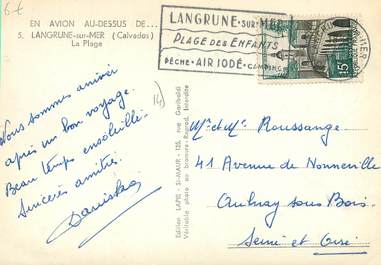 6€
EN AVION AU-DESSUS DE...
5. LANGRUNE-sur-MER (Calvados)
La Plage
LANGRUNE-SUR-MER
PLAGE DES ENFANTS
PÊCHE • AIR IODÉ • CAMPING
15F
Nous sommes arrivés
après un bon voyage.
Beau temps ensoleillé.
Sincères amitiés.
(14)
Edition LAPIE - St-MAUR - 125, rue Garibaldi
Véritable photo au bromure - Reprod. interdite
Mr et Me Roussange
41 Avenue de Nonneville
Aulnay sous Bois
Seine et Oise